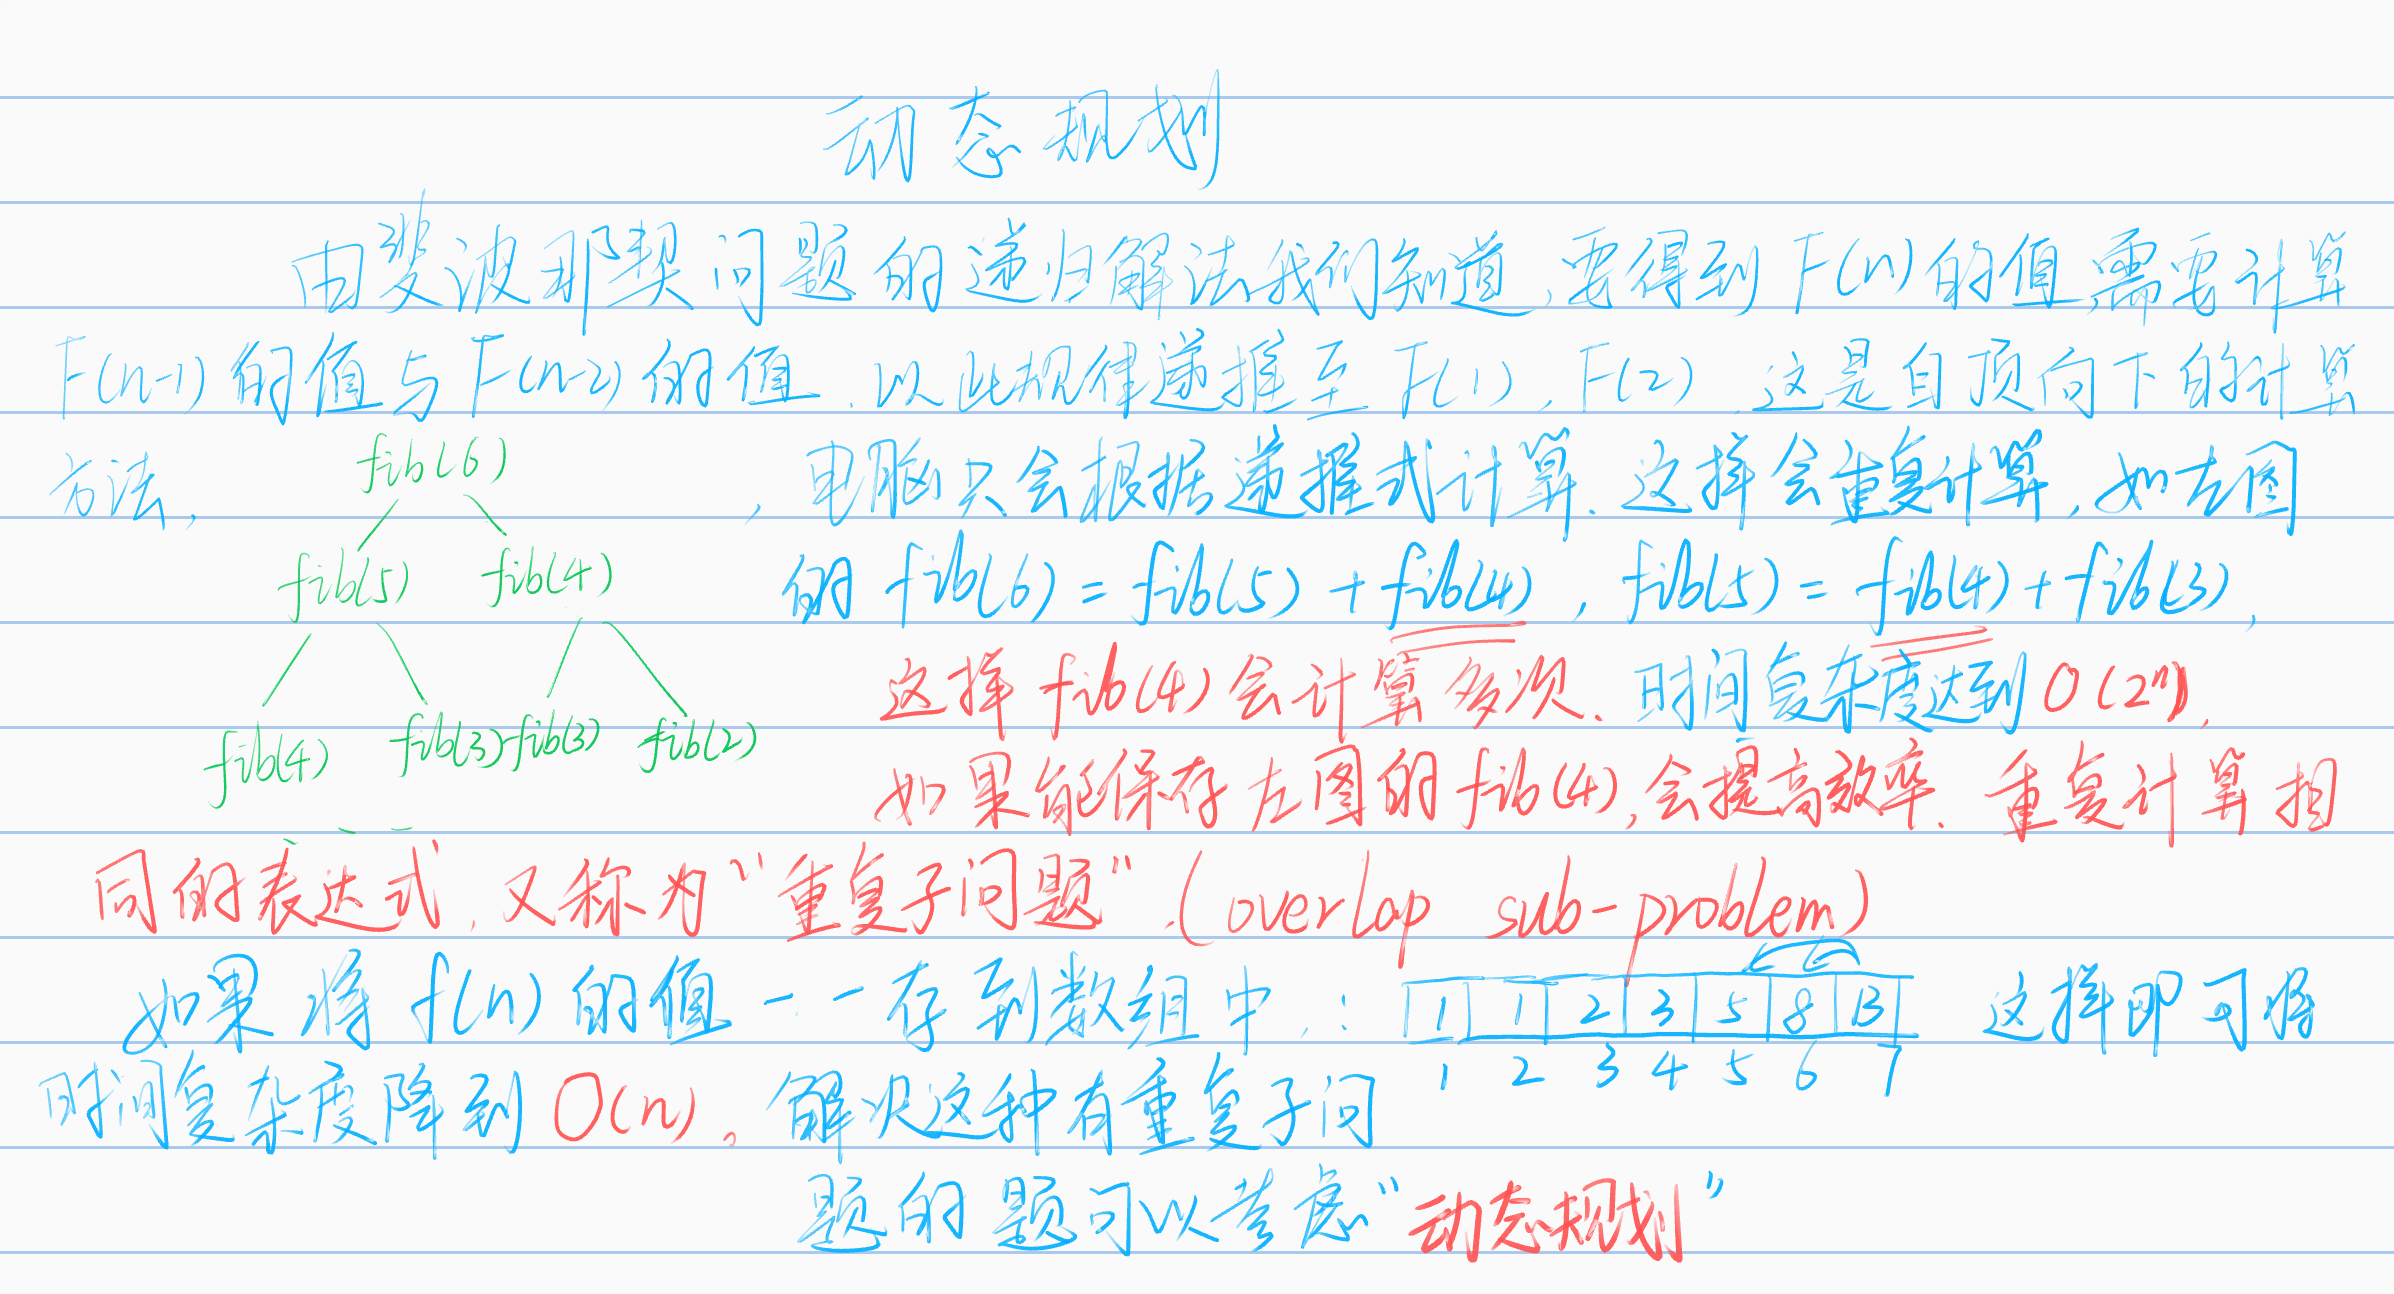 动态规划
由斐波那契问题的递归解法我们知道,要得到F(n)的值,需要计算
F(n-1)的值与F(n-2)的值.以此规律递推至F(1),F(2).这是自顶向下的计算
方法,
fib(6)
fib(5) fib(4)
fib(4) fib(3) fib(3) fib(2)
,电脑只会根据递推式计算.这样会重复计算,如左图
的 fib(6) = fib(5) + fib(4), fib(5) = fib(4) + fib(3),
这样fib(4)会计算多次.时间复杂度达到O(2ⁿ),
如果能保存左图的fib(4),会提高效率.重复计算相
同的表达式,又称为“重复子问题”.(overlap sub-problem)
如果将f(n)的值一一存到数组中,: 1 1 2 3 5 8 13 这样即可将
1 2 3 4 5 6 7
时间复杂度降到O(n)。解决这种有重复子问
题的题可以考虑“动态规划”